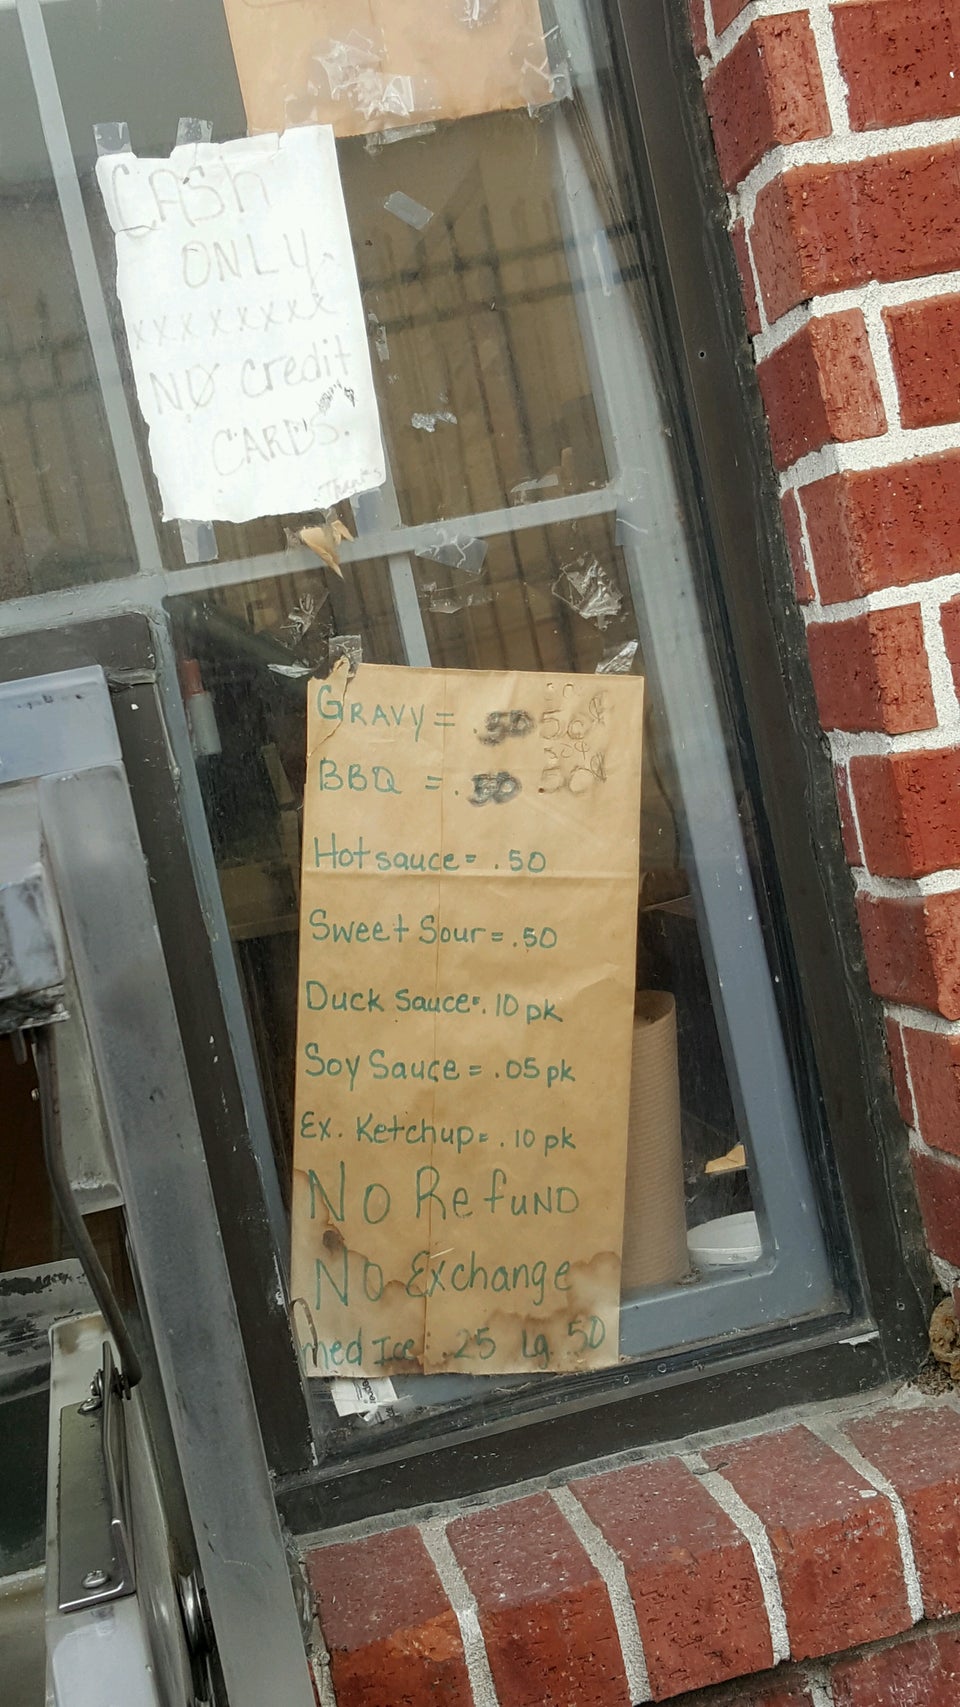 CASH
ONLY
xxxxxxxx
NO Credit
CARDS.
Thanks
50
GRAVY = .50 50¢
50¢
BBQ = .50 50¢
Hot sauce = .50
Sweet Sour = .50
Duck Sauce = .10 pk
Soy Sauce = .05 pk
Ex. Ketchup = .10 pk
No Refund
No Exchange
med Ice : .25 Lg. 50